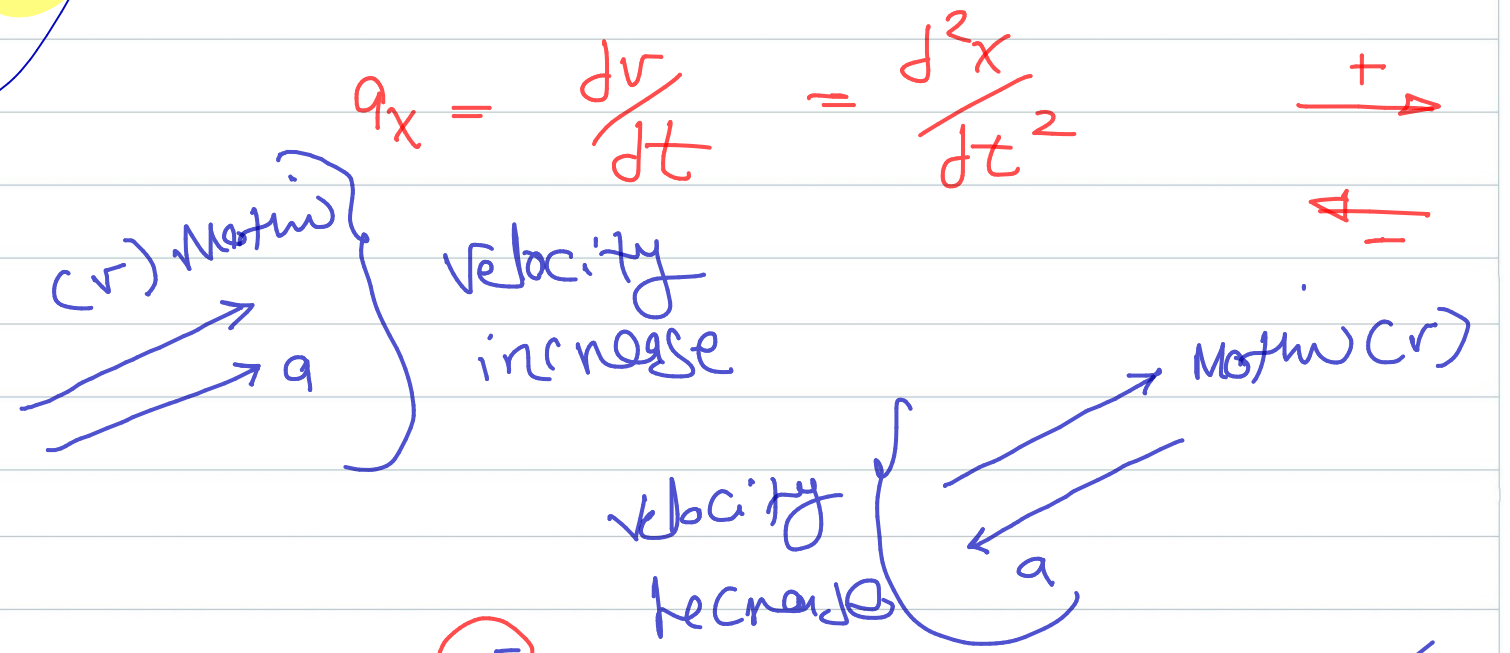 aₓ = dv/dt = d²x/dt² +
−
(v) Motin
a
velocity
increase
Motin (v)
velocity
a
decrease